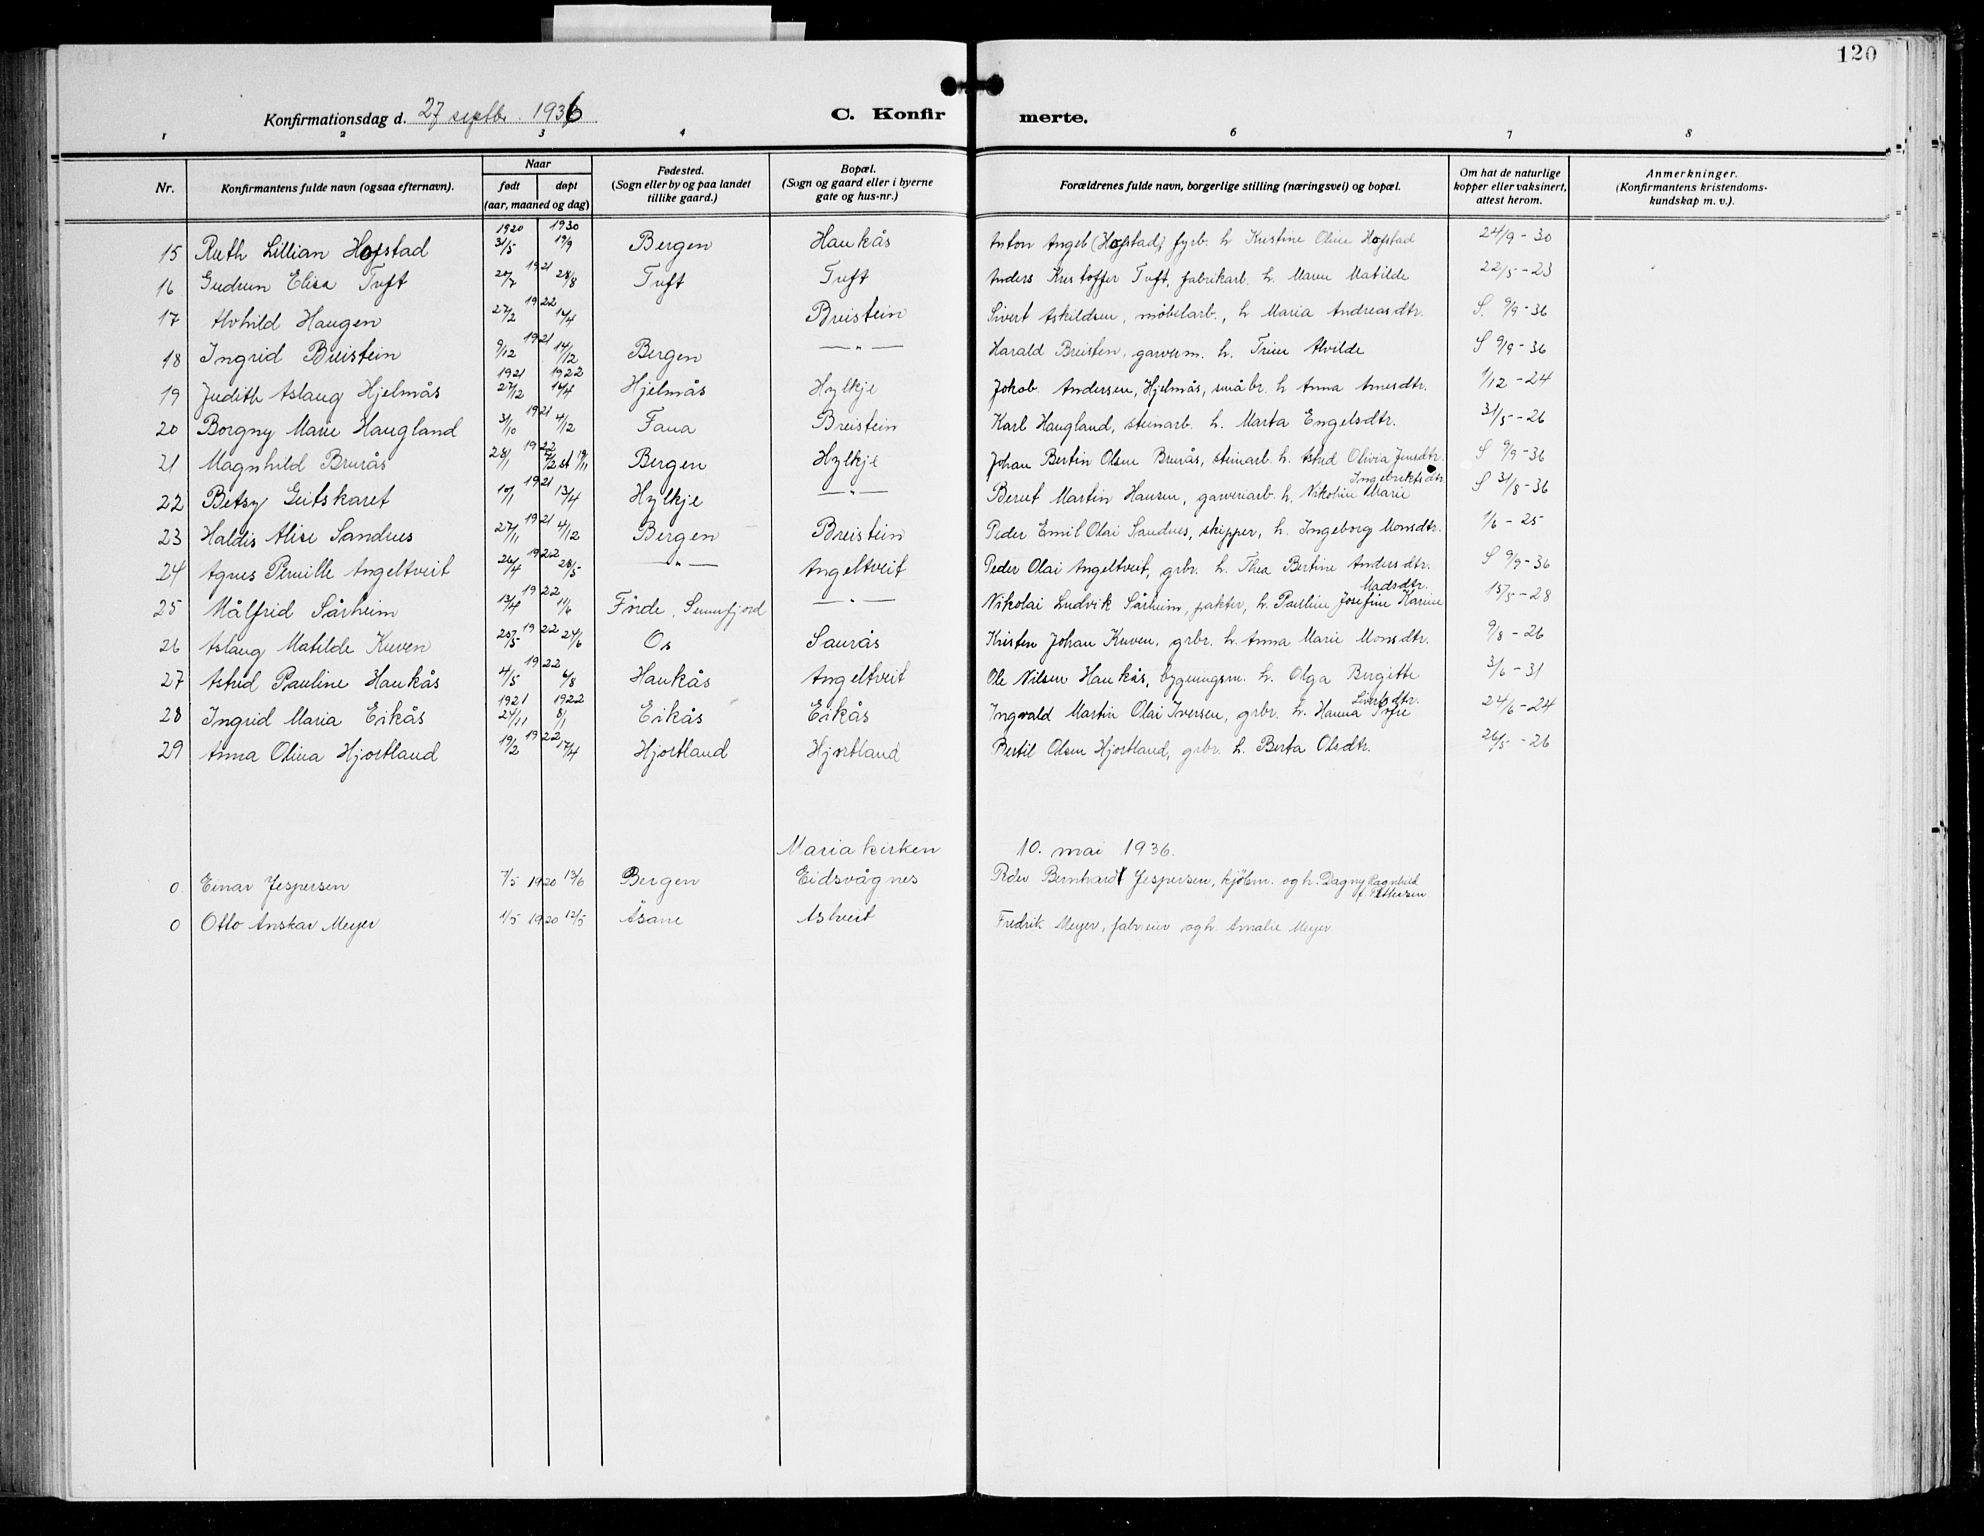 120
Konfirmationsdag d. 27 septbr. 1936
C. Konfir merte.
1 2 3 4 6 7 8
Nr. Konfirmantens fulde navn (ogsaa efternavn). Naar født døpt (aar, maaned og dag) Fødested. (Sogn eller by og paa landet tillike gaard.) Bopæl. (Sogn og gaard eller i byerne gate og hus-nr.) Forældrenes fulde navn, borgerlige stilling (næringsvei) og bopæl. Om hat de naturlige kopper eller vaksinert, attest herom. Anmerkninger. (Konfirmantens kristendomskundskap m. v.).
15 Ruth Lillian Hofstad 1920 31/5 1930 19/9 Bergen Haukås Anton Angel (Hofstad) fyrb. h. Kristine Oline Hofstad 24/9-30
16 Gudrun Elisa Tuft 27/7 1921 28/8 Tuft Tuft Anders Kristoffer Tuft, fabrikarb. h. Maren Matilde 22/5-23
17 Alvhild Haugen 27/2 1922 17/4 Breistein Sivert Askildsen, møbelarb., h. Maria Andreasdtr. S. 9/9-36
18 Ingrid Breistein 9/12 1921 14/12 Bergen —"— Harald Breisten, garverm. h. Trine Alvilde S 9/9-36
19 Judith Aslaug Hjelmås 1921 27/12 1922 16/4 Hjelmås Hylkje Jakob Andersen, Hjelmås, småbr. h. Anna Arnesdtr. 1/12-24
20 Borgny Marie Haugland 3/10 1921 4/12 Fana Breistein Karl Haugland, steinarb. h. Marta Engelsdtr. 31/5-26
21 Magnhild Brurås 28/1 1922 /2 st 19/11 Bergen Hylkje Johan Bertin Olsen Brurås, steinarb. h. Astrid Olivia Jensdtr. S 9/9-36
22 Betsy Geitskaret 10/1 1921 13/4 Hylkje —"— Berut Martin Hansen, garveriarb. h. Nikoline Marie Ingebriktsdtr. S 31/8-36
23 Haldis Alise Sandnes 27/11 1921 4/12 Bergen Breistein Peder Emil Olai Sandnes, skipper, h. Ingeborg Monsdtr. 1/6-25
24 Agnes Pernille Angeltveit 26/4 1922 28/5 —"— Angeltveit Peder Olai Angeltveit, grbr. h. Thea Bertine Andersdtr. S 9/9-36
25 Målfrid Sårheim 13/4 1922 11/6 Förde, Sunnfjord —"— Nikolai Ludvik Sårheim, pakter, h. Pauline Josefine Karine Madsdtr. 15/5-28
26 Aslaug Matilde Kuven 20/5 1922 24/6 Os Saurås Kristen Johan Kuven, grbr. h. Anna Marie Monsdtr. 9/8-26
27 Astrid Pauline Haukås 4/5 1922 6/8 Haukås Angeltveit Ole Nilsen Haukås, bygningsm. h. Olga Birgitte 3/6-31
28 Ingrid Maria Eikås 1921 24/11 1922 8/1 Eikås Eikås Ingvald Martin Olai Iversen, grbr. h. Hanna Sivertsdtr. 24/6-24
29 Anna Olina Hjortland 19/2 1922 17/4 Hjortland Hjortland Bertil Olsen Hjortland, grbr. h. Berta Olsdtr. 26/5-26
Maria kirken 10. mai 1936.
0 Einar Jespersen 7/5 1920 13/6 Bergen Eidsvågnes Peder Bernhard Jespersen, kjølm. og h. Dagny Ragnhild f. Pettersen
0 Otto Anskar Meyer 1/5 1920 12/5 Åsane Astveit Fredrik Meyer, fabr.eier og h. Amalie Meyer